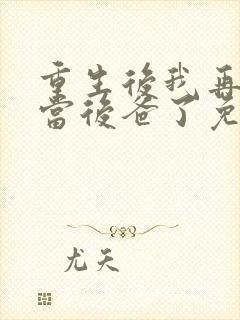 重生後我再
當後爸了免
尤天